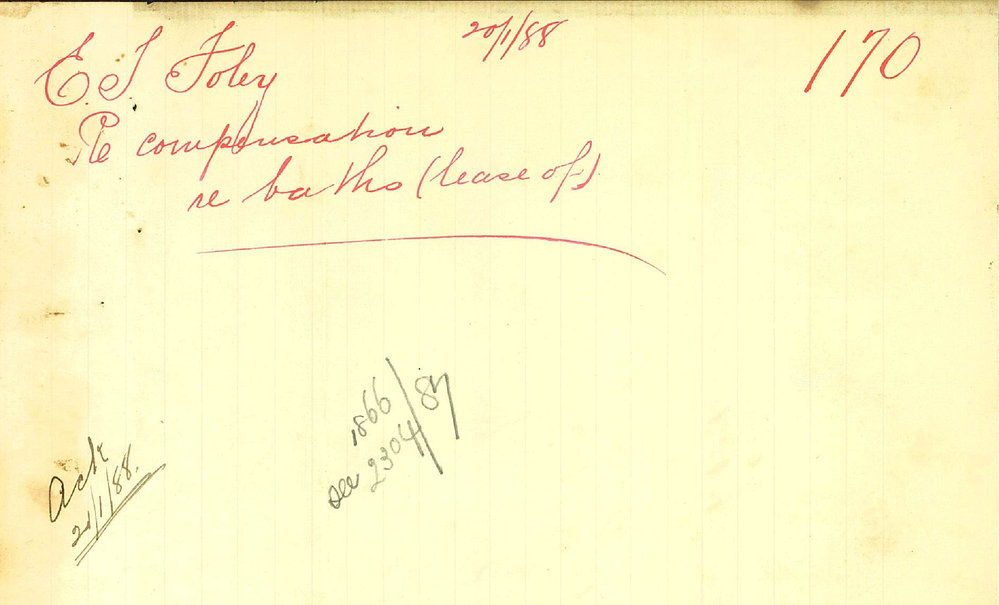 20/1/88
170
E. J. Foley
Re compensation
re baths (lease of)
1866
see 2304/87
Ack
21/1/88.